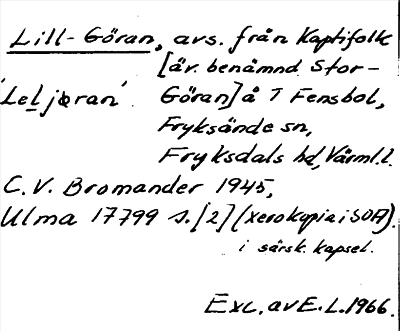 Lill-Göran, avs. från Kaptifolk
[äv. benämnd Stor-
'Leljøran'. Göran] å T Fensbol,
Fryksände sn,
Fryksdals hd, Värml.l.
C.V. Bromander 1945,
Ulma 17799 s.[2] (xerokopia i SOA).
i särsk. kapsel.
Exc. av E.L. 1966.